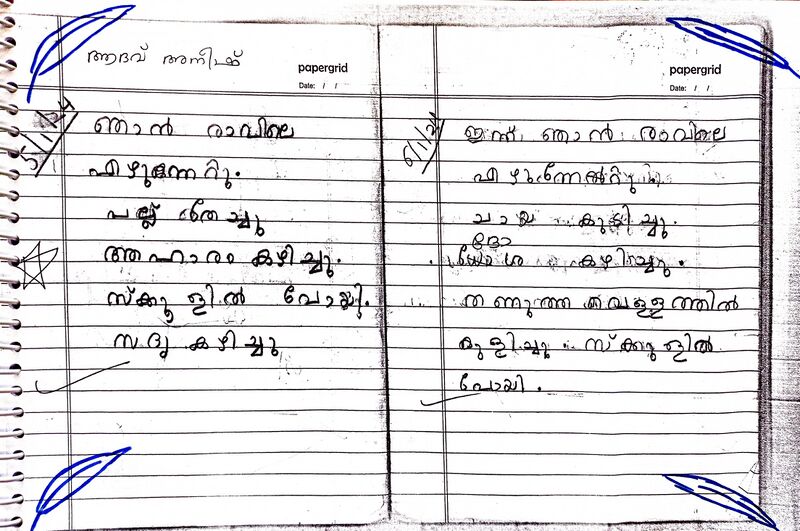 ആദവ് അനീഷ്
papergrid
Date: / /
5/1/24
ഞാൻ രാവിലെ
എഴുന്നേറ്റു.
പല്ല് തേച്ചു
ആഹാരം കഴിച്ചു.
സ്ക്കൂളിൽ പോയി.
സദ്യ കഴിച്ചു
papergrid
Date: / /
6/1/24
ഇന്ന് ഞാൻ രാവിലെ
എഴുന്നേറ്റു.
ചായ കുടിച്ചു.
ദോ
ശ കഴിച്ചു.
തണുത്ത വെള്ളത്തിൽ
കുളിച്ചു. സ്ക്കൂളിൽ
പോയി.